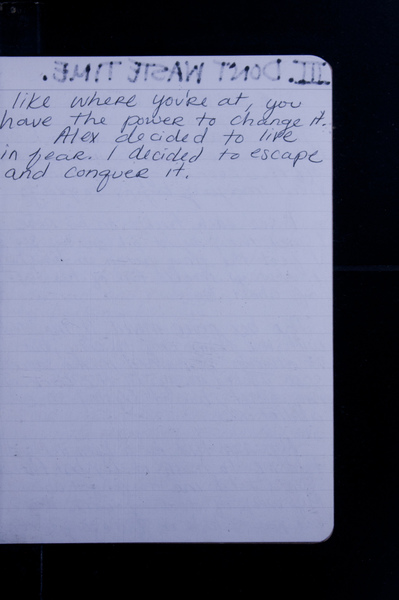 III. DON'T WASTE TIME.
like where you're at, you
have the power to change it.
Alex decided to live
in fear. I decided to escape
and conquer it.